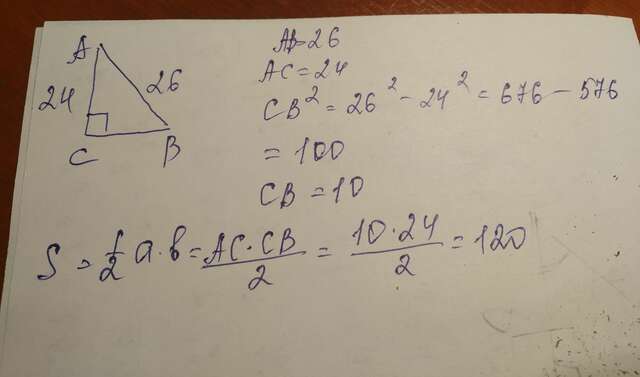 A
24
26
C
B
AB=26
AC=24
CB² = 26² - 24² = 676 - 576
= 100
CB = 10
S = 1/2 a·b = AC·CB/2 = 10·24/2 = 120